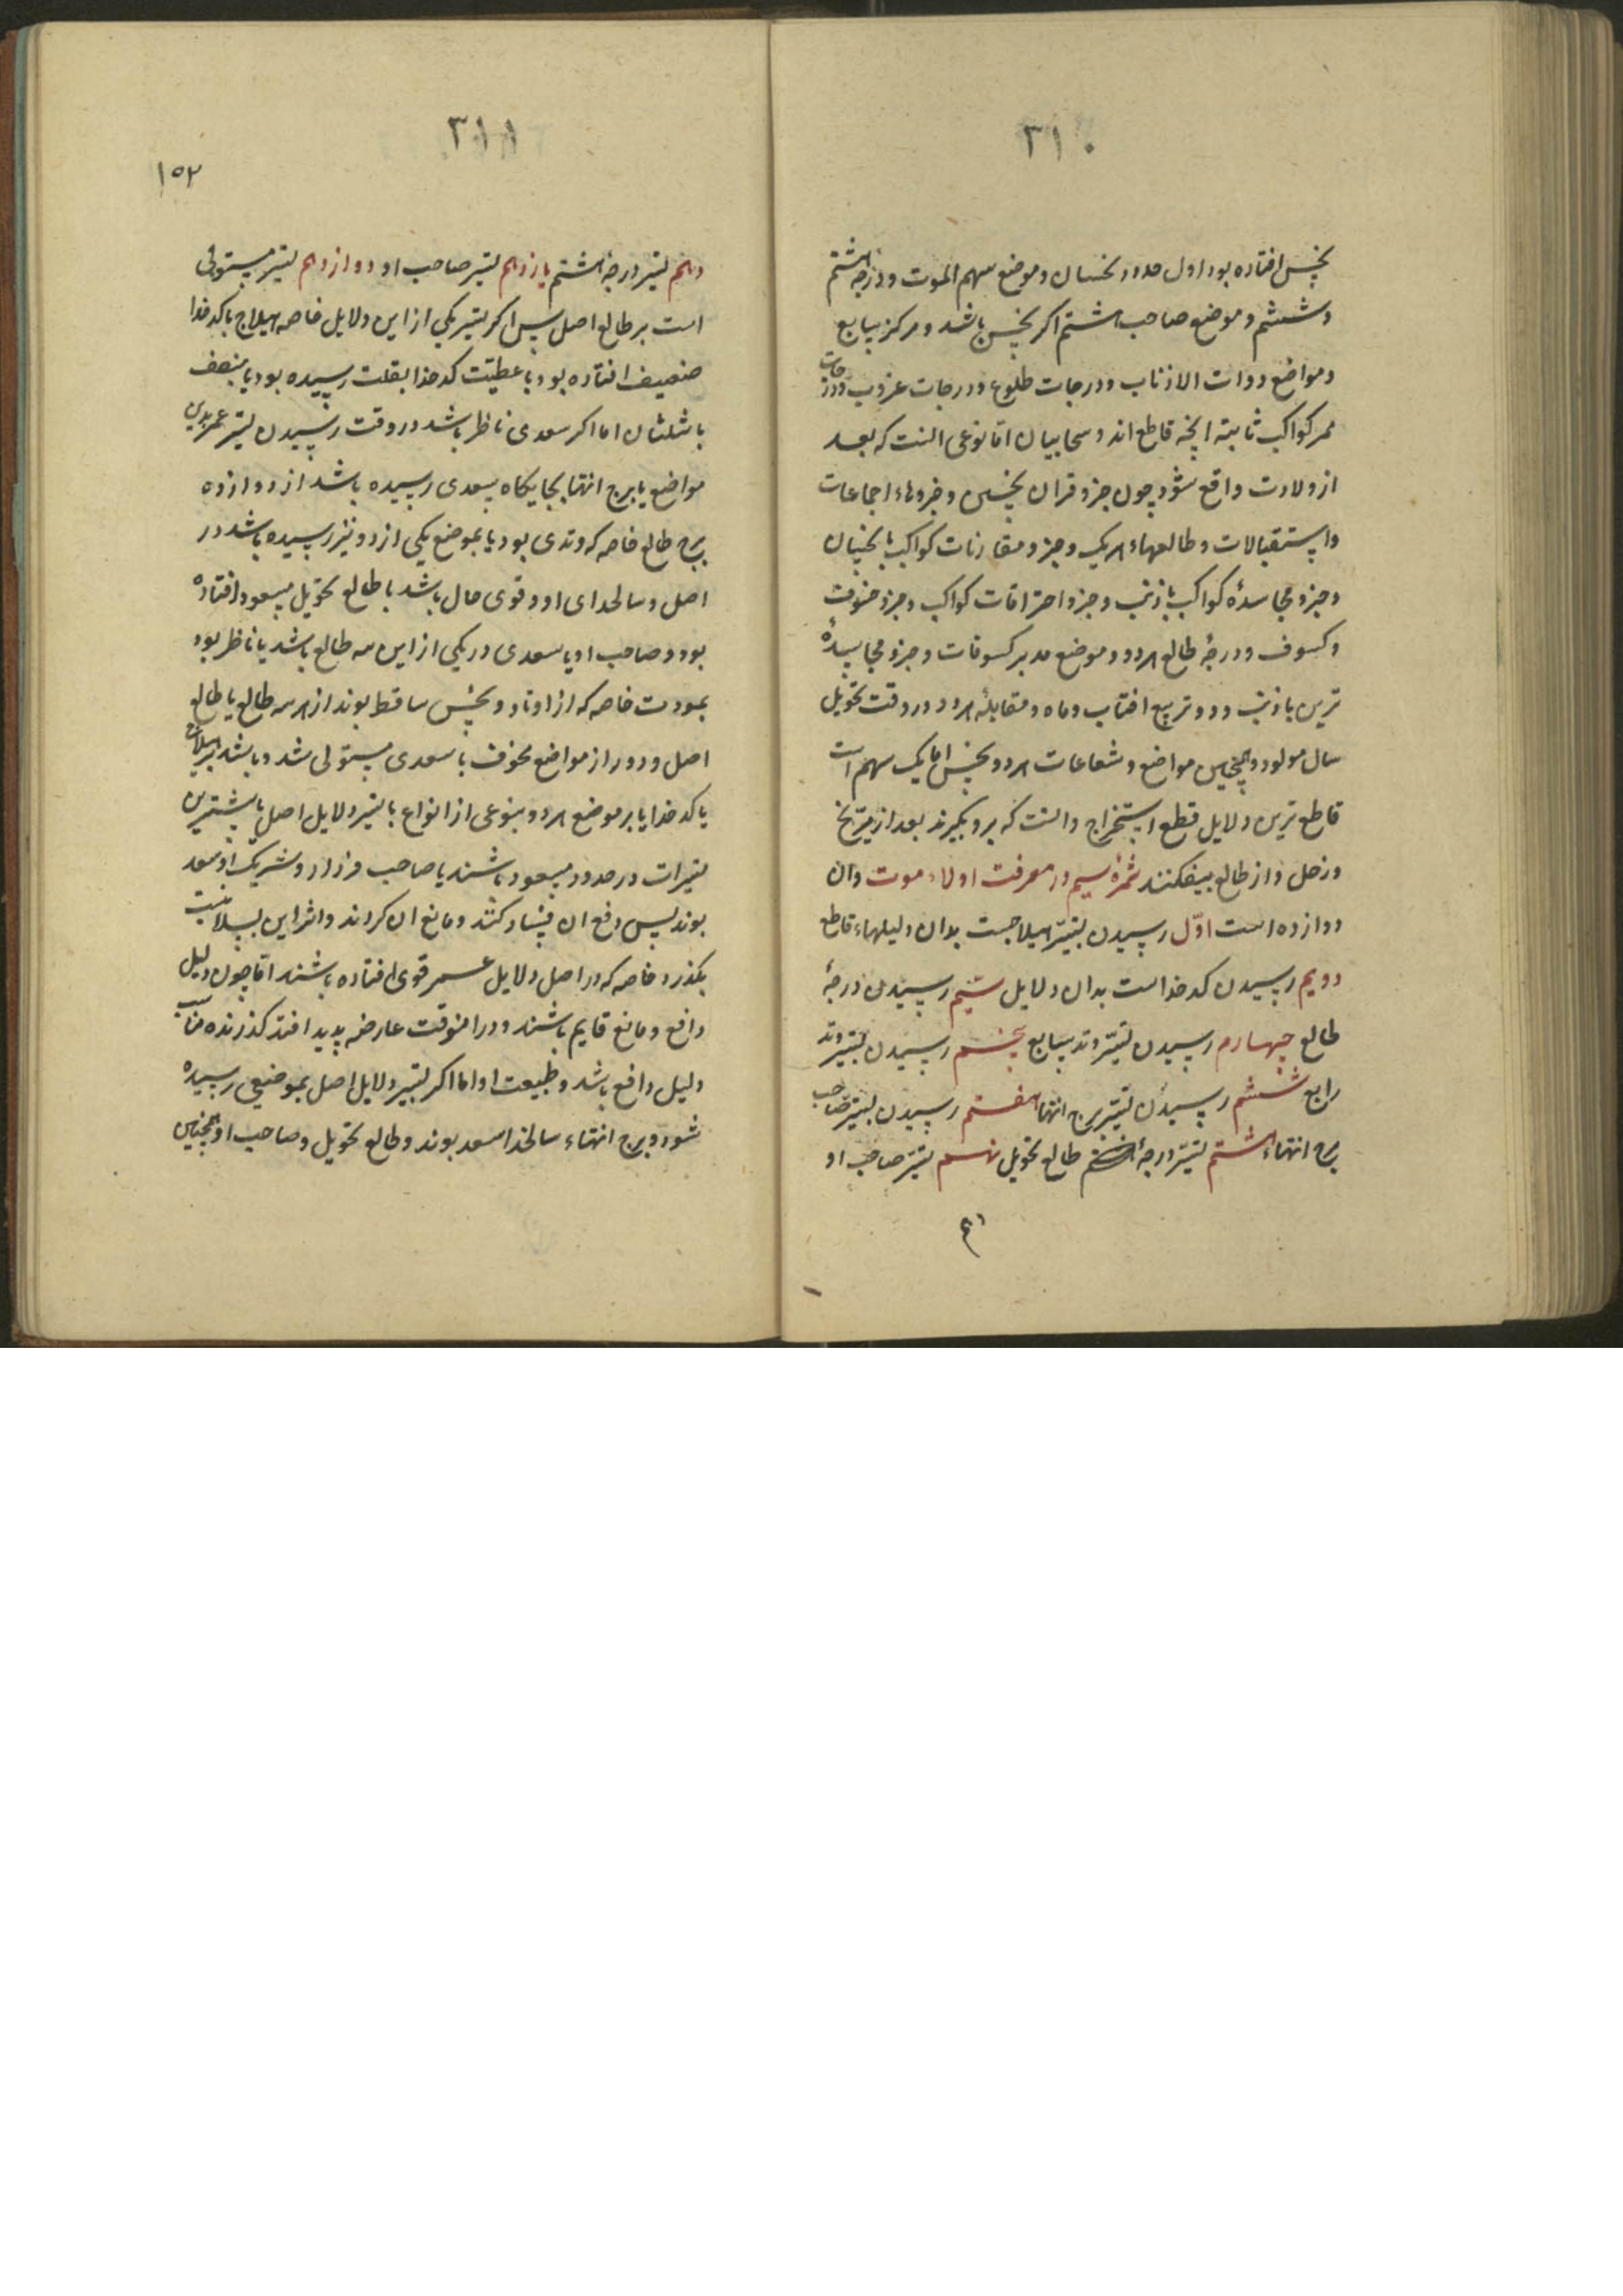 ۳۱۰
بنحس افتاده بود اول حدود نحسان و موضع سهم الموت و درجهٔ هشتم
و ششم و موضع صاحب هشتم اکر نحس باشد و مرکز سابع
و مواضع ذوات الاذناب و درجات طلوع و درجات غروب و درجات
ممر کواکب ثابته انچه قاطع اند و سحابیان اما نوعی انست که بعد
از ولادت واقع شود چون جزو قران نحسین و جزوهاء اجماعات
و استقبالات و طالعهاء هر یک و جزو مقارنات کواکب با نحسان
و جزو مجاسدهٔ کواکب با ذنب و جزو احتراقات کواکب و جزو خسوف
و کسوف و درجهٔ طالع هر دو و موضع مدبر کسوفات و جزو مجاسدهٔ
نیرین با ذنب و دو تربیع افتاب و ماه و مقابلهٔ هر دو در وقت تحویل
سال مولود و همچنین مواضع و شعاعات هر دو نحس اما یک سهم است
قاطع ترین دلایل قطع استخراج و انست که برو بکیرند بعد از مریخ
و زحل و از طالع بیفکنند ثمرهٔ سیم در معرفت اولاء موت و ان
دوازده است اوّل رسیدن بتسییر هیلاجست بدان دلیلهاء قاطع
دویم رسیدن کدخداست بدان دلایل سیم رسیدن درجهٔ
طالع چهارم رسیدن تسییر وتد سابع پنجم رسیدن تسییر وتد
رابع ششم رسیدن تسییر برج انتها هفتم رسیدن بتسییر صاحب
برج انتهاء هشتم تسییر درجهٔ طالع تحویل نهم تسییر صاحب او
۳۱۱
۱۵۲
دهم تسییر درجهٔ هشتم یازدهم تسییر صاحب او دوازدهم تسییر مستولی
است بر طالع اصل پس اکر تسییر یکی از این دلایل خاصه هیلاج با کدخدا
ضعیف افتاده بود با عطیّت کدخدا بقلت رسیده بود یا بنصف
یا ثلثان اما اکر سعدی ناظر باشد در وقت رسیدن تسییر عمر بدین
مواضع یا برج انتها بجایکاه سعدی رسیده باشد از دوازده
برج طالع خاصه که وتدی بود یا بموضع یکی از دو نیر رسیده باشد در
اصل و سالخدای او و قوی حال باشد یا طالع تحویل مسعود افتاده
بود و صاحب او یا سعدی در یکی از این سه طالع باشد یا ناظر بود
بمودت خاصه که از اوتاد و نحس ساقط بوند از هر سه طالع یا طالع
اصل و دور از مواضع مخوف یا سعدی مستولی شد و باشد بر هیلاج
یا کدخدا یا بر موضع هر دو بنوعی از انواع یا تسییر دلایل اصل یا بیشترین
تسییرات در حدود مسعود باشند یا صاحب فرزار و شریک او سعد
بوند پس دفع ان فساد کنند و مانع ان کردند و اثر این بسلامت
بکذرد خاصه که در اصل دلایل عمر قوی افتاده باشند امّا چون دلیل
دافع و مانع قایم باشند و در انوقت عارضه پدید افتد کذرنده مناسب
دلیل دافع باشد و طبیعت او اما اکر تسییر دلایل اصل بموضعی رسیده
شود و برج انتهاء سالخدا سعد بوند و طالع تحویل و صاحب او همچنین